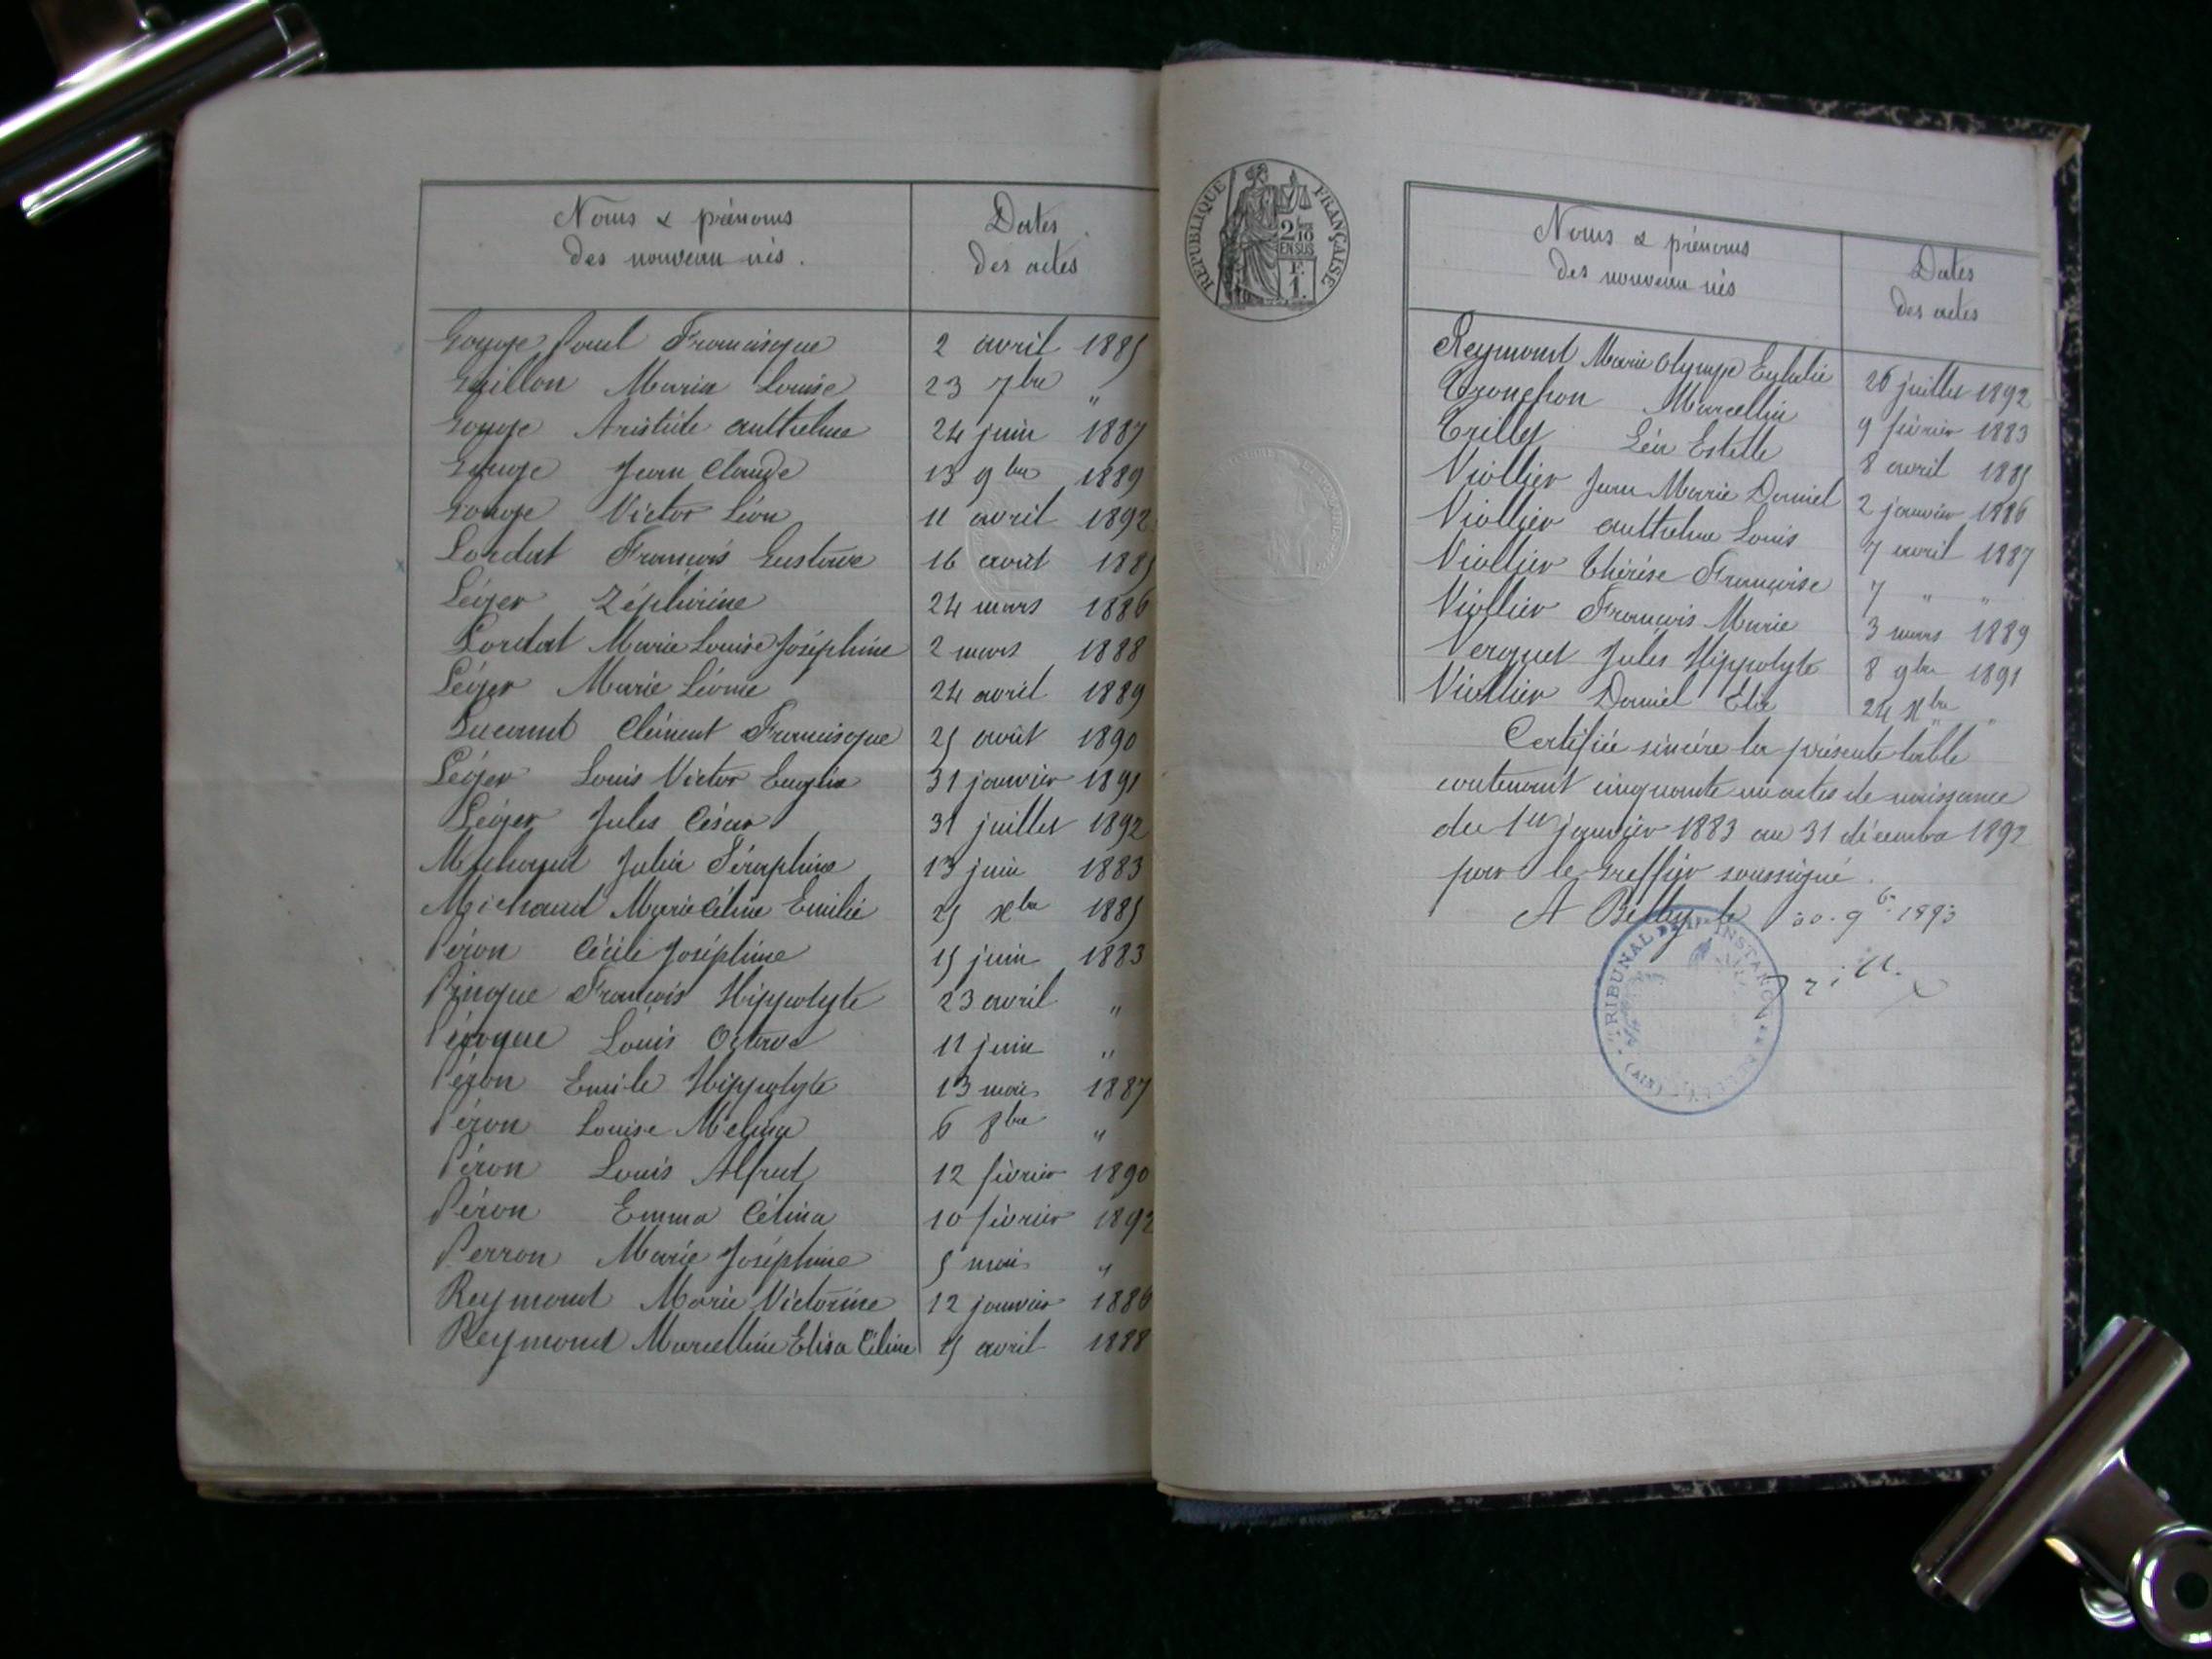 Noms & prénoms
des nouveau nés.
Dates
des actes
Goyge Paul Francisque 2 avril 1885
Guillon Maria Louise 23 7bre "
Goyge Aristide Anthelme 24 juin 1887
Goyge Jean Claude 13 9bre 1889
Goyge Victor Léon 11 avril 1892
Lordat François Gustave 16 août 1885
Léger Zéphirine 24 mars 1886
Lordat Marie Louise Joséphine 2 mars 1888
Léger Marie Léonie 24 avril 1889
Lucand Clément Francisque 25 août 1890
Léger Louis Victor 31 janvier 1891
Léger Jules César 31 juillet 1892
Michaud Julie Séraphine 13 juin 1883
Michaud Marie Céline Emilie 25 Xbre 1885
Péron Cécile Joséphine 15 juin 1883
François Hippolyte 23 avril "
Louis Octave 11 juin "
Péron Emile Hippolyte 13 mai 1887
Péron Louise Mélina 6 8bre "
Péron Louis Alfred 12 février 1890
Péron Emma Célina 10 février 1892
Perron Marie Joséphine 5 mai "
Reymond Marie Victorine 12 janvier 1886
Reymond Marcelline Elisa Céline 15 avril 1888
RÉPUBLIQUE FRANÇAISE
2/10
EN SUS
F.
1.
Noms & prénoms
des nouveau nés
Dates
des actes
Reymond Marie Olympe Eulalie 26 juillet 1892
Tronchon Marcellin 9 février 1883
Trillet Léa Estelle 8 avril 1885
Viollier Jean Marie Daniel 2 janvier 1886
Viollier Anthelme Louis 7 avril 1887
Viollier Thérèse Françoise 7 " "
Viollier François Marie 3 mars 1889
Verguet Jules Hippolyte 8 9bre 1891
Viollier Daniel Elie 24 Xbre "
Certifiée sincère la présente table
contenant cinquante un actes de naissance
du 1er janvier 1883 au 31 décembre 1892
par le Greffier soussigné.
A Belley le 30. 9b. 1893
TRIBUNAL DE 1re INSTANCE
(AIN)